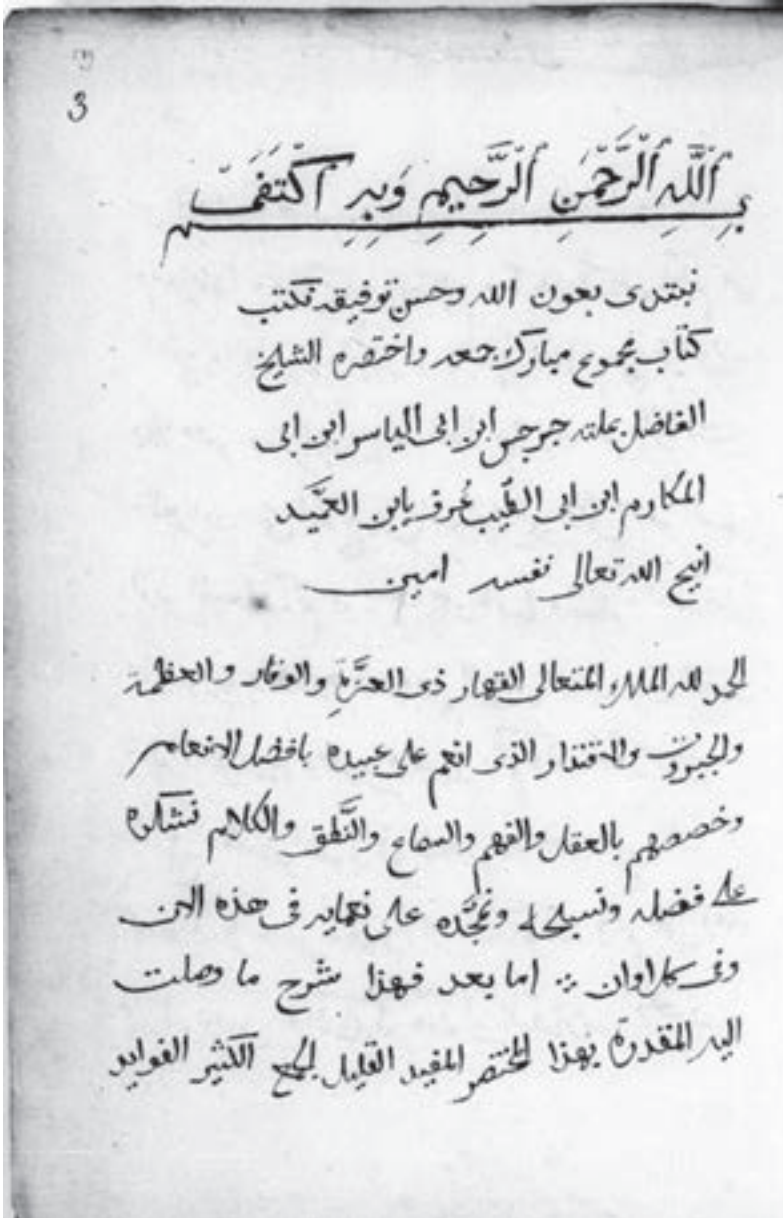 3
بِسْمِ ٱللَّهِ ٱلرَّحْمَنِ ٱلرَّحِيمِ وَبِهِ
نبتدى بعون الله وحسن توفيقه نكتب
كتاب مجموع مبارك جمعه واختصره الشيخ
الفاضل بملته جرجس ابن ابى الياسر ابن ابى
المكارم ابن ابى الطيب عُرف بابن العميد
انيح الله تعالى نفسه امين
الحمد لله الملك المتعالى القهار ذى العزَّةِ والوقار والعظمة
والجبروت والاقتدار الذى انعم على عبيده بافضل الانعام
وخصصهم بالعقل والفهم والسماع والنَّطق والكلام نشكره
على فضله ونسبحه ونمجَّده على نعمايه فى هذه الان
وفى كل اوان ؞ اما بعد فهذا شرح ما وصلت
اليه المقدرة بهذا المختصر المفيد القليل الجمع الكثير الفوايد